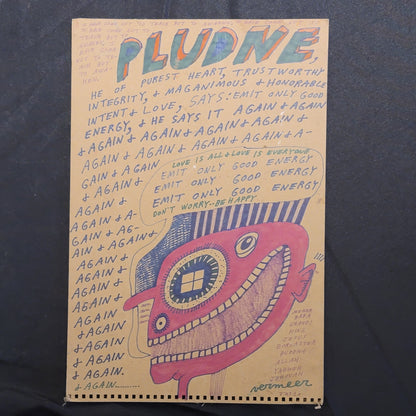 PLUDNE,
HE OF PUREST HEART, TRUSTWORTHY
INTEGRITY, & MAGANIMOUS & HONORABLE
INTENT & LOVE, SAYS: EMIT ONLY GOOD
ENERGY, & HE SAYS IT AGAIN & AGAIN
& AGAIN & AGAIN & AGAIN & AGAIN &
AGAIN & AGAIN & AGAIN & AGAIN & A-
GAIN & AGAIN
& AGAIN &
AGAIN &
AGAIN & A-
GAIN & AG-
AIN & AGAIN &
AGAIN &
AGAIN &
AGAIN &
AGAIN &
& AGAIN
& AGAIN
& AGAIN
& AGAIN.
& AGAIN........
LOVE IS ALL & LOVE IS EVERYONE
EMIT ONLY GOOD ENERGY
EMIT ONLY GOOD ENERGY
EMIT ONLY GOOD ENERGY
DON'T WORRY--BE HAPPY
BUDDHA
ALLAH
YAHWEH
JEHOVAH
vermeer